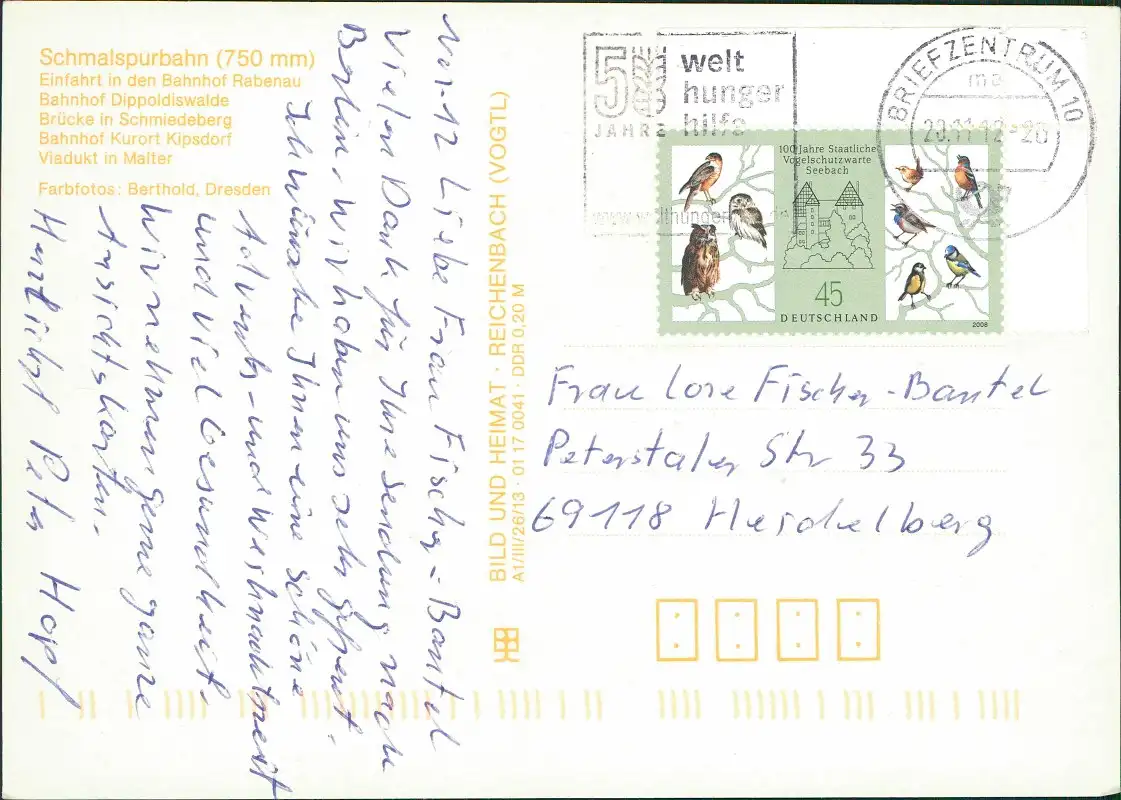 Schmalspurbahn (750 mm)
Einfahrt in den Bahnhof Rabenau
Bahnhof Dippoldiswalde
Brücke in Schmiedeberg
Bahnhof Kurort Kipsdorf
Viadukt in Malter
Farbfotos: Berthold, Dresden
Liebe Frau Fischer-Bantel
Vielen Dank für Ihre Sendung nach
Berlin. Wir haben uns sehr gefreut.
Ich wünsche Ihnen eine schöne
Advents- und Weihnachtszeit
und viel Gesundheit.
Wir nehmen gerne ganze
Ansichtskarten.
Herzlichst Peter Hopf
BILD UND HEIMAT · REICHENBACH (VOGTL)
A1/III/26/13 · 01 17 0041 · DDR 0,20 M
50
JAHRE
welt
hunger
hilfe
BRIEFZENTRUM 10
100 Jahre Staatliche
Vogelschutzwarte
Seebach
45
DEUTSCHLAND
2008
Frau Lore Fischer-Bantel
Peterstaler Str 33
69118 Heidelberg